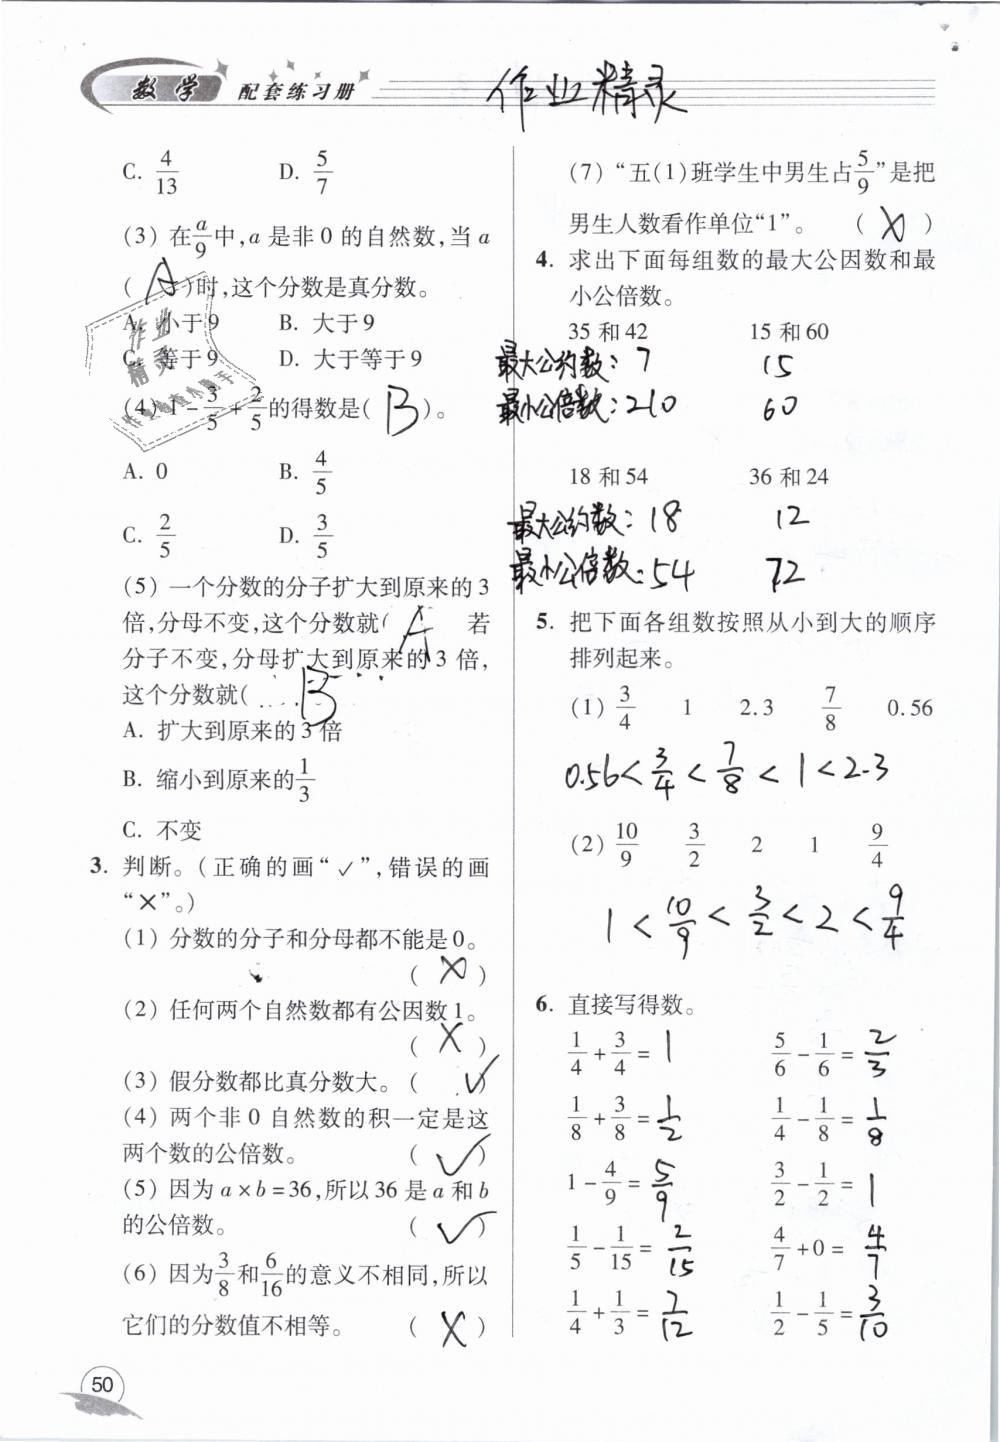 数学 配套练习册 作业精灵
C. 4/13 D. 5/7
(3) 在a/9中,a 是非 0 的自然数,当 a
( A )时,这个分数是真分数。
A. 小于 9 B. 大于 9
C. 等于 9 D. 大于等于 9
(4) 1 - 3/5 + 2/5的得数是( B )。
A. 0 B. 4/5
C. 2/5 D. 3/5
(5) 一个分数的分子扩大到原来的 3
倍,分母不变,这个分数就( A 若
分子不变,分母扩大到原来的 3 倍,
这个分数就( B
A. 扩大到原来的 3 倍
B. 缩小到原来的1/3
C. 不变
3. 判断。(正确的画“✓”,错误的画
“×”。)
(1) 分数的分子和分母都不能是 0。
( × )
(2) 任何两个自然数都有公因数 1。
( × )
(3) 假分数都比真分数大。 ( ✓ )
(4) 两个非 0 自然数的积一定是这
两个数的公倍数。 ( ✓ )
(5) 因为 a×b=36,所以 36 是 a 和 b
的公倍数。 ( ✓ )
(6) 因为3/8和6/16的意义不相同,所以
它们的分数值不相等。 ( × )
50
(7) “五(1)班学生中男生占5/9”是把
男生人数看作单位“1”。 ( × )
4. 求出下面每组数的最大公因数和最
小公倍数。
35 和 42 15 和 60
最大公约数: 7 15
最小公倍数: 210 60
18 和 54 36 和 24
最大公约数: 18 12
最小公倍数: 54 72
5. 把下面各组数按照从小到大的顺序
排列起来。
(1) 3/4 1 2.3 7/8 0.56
0.56 < 3/4 < 7/8 < 1 < 2.3
(2) 10/9 3/2 2 1 9/4
1 < 10/9 < 3/2 < 2 < 9/4
6. 直接写得数。
1/4 + 3/4 = 1 5/6 - 1/6 = 2/3
1/8 + 3/8 = 1/2 1/4 - 1/8 = 1/8
1 - 4/9 = 5/9 3/2 - 1/2 = 1
1/5 - 1/15 = 2/15 4/7 + 0 = 4/7
1/4 + 1/3 = 7/12 1/2 - 1/5 = 3/10
作业
精灵